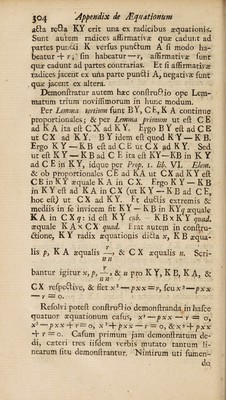 304 Appendix de Æquationum
acta recta KY erit una ex radicibus æquationis.
Sunt autem radices affirmativæ quæ cadunt ad
partes puncti K versus punctum A si modo ha-
beatur + r; sin habeatur — r, affirmativæ sunt
quæ cadunt ad partes contrarias. Et si affirmativæ
radices jacent ex una parte puncti A, negativæ sunt
quæ jacent ex altera.
Demonstratur autem hæc constructio ope Lem-
matum trium novissimorum in hunc modum.
Per Lemma tertium sunt BY, CE, KA continue
proportionales; & per Lemma primum ut est CE
ad KA ita est CX ad KY. Ergo BY est ad CE
ut CX ad KY. BY idem est quod KY — KB.
Ergo KY — KB est ad CE ut CX ad KY. Sed
ut est KY — KB ad CE ita est KY—KB in KY
ad CE in KY, idque per Prop. 1. lib. VI. Elem.
& ob proportionales CE ad KA ut CX ad KY est
CE in KY æquale KA in CX. Ergo KY — KB
in KY est ad KA in CX (ut KY — KB ad CE,
hoc est) ut CX ad KY. Et ductis extremis &
mediis in se invicem fit KY — KB in KYq æquale
KA in CXq: id est KY cub. — KB×KY quad.
æquale KA×CX quad. Erat autem in constru-
ctione, KY radix æquationis dicta x, KB æqua-
lis p, KA æqualis r/nn, & CX æqualis n. Scri-
bantur igitur x, p, r/nn, & n pro KY, KB, KA, &
CX respective, & fiet x³ — pxx = r, seu x³ — pxx
— r = 0.
Resolvi potest constructio demonstranda in hasce
quatuor æquationum casus, x³ — pxx — r = 0,
x³ — pxx + r = 0, x³ + pxx — r = 0, & x³ + pxx
+ r = 0. Casum primum jam demonstratum de-
di, cæteri tres iisdem verbis mutato tantum li-
nearum situ demonstrantur. Nimirum uti sumen-
do